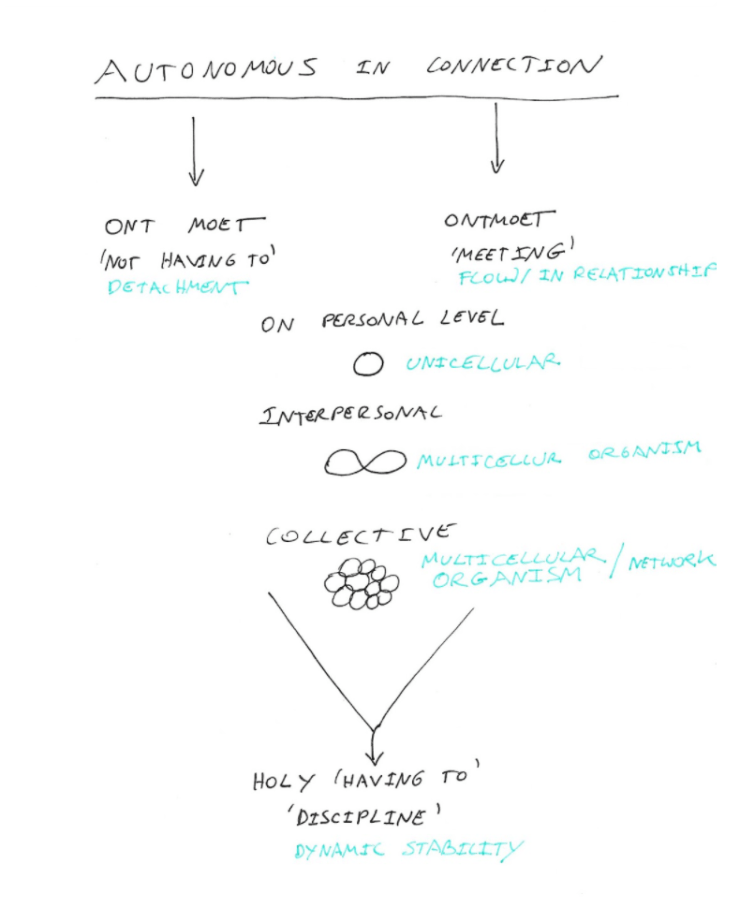 AUTONOMOUS IN CONNECTION
ONT MOET
'NOT HAVING TO'
DETACHMENT
ONTMOET
'MEETING'
FLOW/ IN RELATIONSHIP
ON PERSONAL LEVEL
UNICELLULAR
INTERPERSONAL
MULTICELLUR ORGANISM
COLLECTIVE
MULTICELLULAR / NETWORK
ORGANISM
HOLY 'HAVING TO'
'DISCIPLINE'
DYNAMIC STABILITY